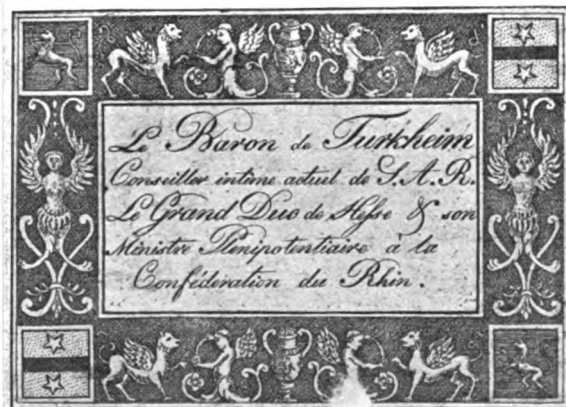 Le Baron de Turkheim
Conseiller intime actuel de S.A.R.
Le Grand Duc de Hesse & son
Ministre Plénipotentiaire à la
Confédération du Rhin.